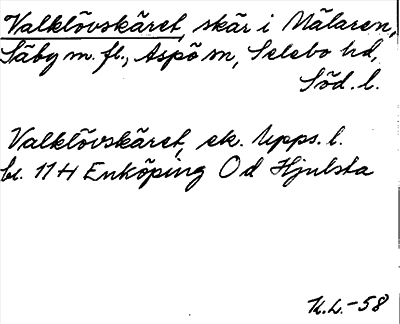 Valklövskäret, skär i Mälaren,
Säby m. fl., Aspö sn, Selebo hd,
Söd. l.
Valklövskäret, ek. Upps. l.
bl. 11 H Enköping O d Hjulsta
K.L.-58